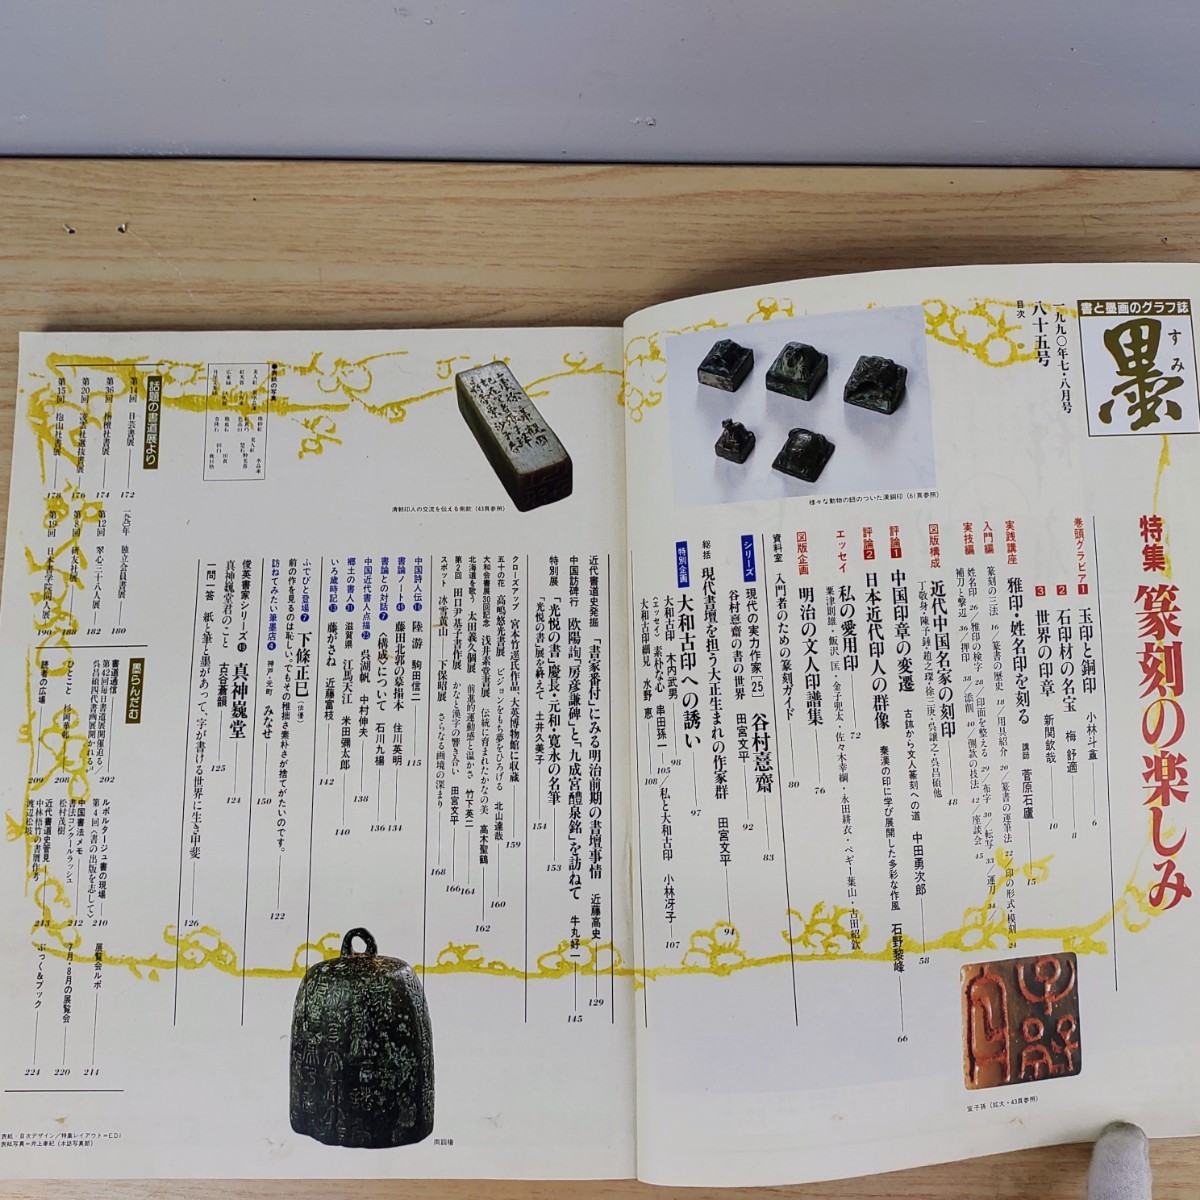 書と墨画のグラフ誌
墨
すみ
一九九〇年七・八月号
八十五号
目次
特集 篆刻の楽しみ
巻頭グラビア
1 玉印と銅印 小林斗盦 6
2 石印材の名宝 梅舒適 8
3 世界の印章 新関欽哉 10
実践講座 雅印・姓名印を刻る 講師 菅原石廬 15
入門編 篆刻の三法 16/篆書の歴史 18/用具紹介 20/篆書の運筆法 22/印の形式・模刻 24
実技編 姓名印 26/雅印の検字 28/印面を整える 29/布字 30/転写 33/運刀 34/補刀と撃辺 36/押印 38/添削 40/側款の技法 42/座談会 45
図版構成 近代中国名家の刻印 48
丁敬身・陳子鋳・趙之琛・徐三庚・呉譲之・呉昌碩他
評論1 中国印章の変遷 古鉥から文人篆刻への道 中田勇次郎 58
評論2 日本近代印人の群像 秦漢の印に学び展開した多彩な作風 石野黎峰 66
エッセイ 私の愛用印 72
粟津則雄・飯沢匡・金子兜太・佐々木幸綱・永田耕衣・ペギー葉山・古田紹欽
図版企画 明治の文人印譜集 76
資料室 入門者のための篆刻ガイド 80
シリーズ 現代の実力作家[25] 谷村憙齋 83
谷村憙齋の書の世界 田宮文平 92
総括 現代書壇を担う大正生まれの作家群 田宮文平 94
特別企画 大和古印への誘い 97
大和古印 木内武男 98
〈エッセイ〉素朴な心 串田孫一 105/私と大和古印 小林冴子 107
大和古印観 水野恵 108
様々な動物の鈕のついた漢銅印(61頁参照)
宜子孫(拡大・43頁参照)
清朝印人の交流を伝える側款(43頁参照)
近代書道史発掘 「書家番付」にみる明治前期の書壇事情 近藤高史 129
中国訪碑行 欧陽詢「房彦謙碑」と「九成宮醴泉銘」を訪ねて 牛丸好一 145
特別展 「光悦の書」慶長・元和・寛永の名筆 153
「光悦の書」展を終えて 土井久美子 154
クローズアップ 宮本竹逕氏作品、大英博物館に収蔵 159
五十の花 高嶋悠光書展 ビジョンをもち夢をひろげる 北山達哉 160
大和会書展30回記念 浅井素堂書展 伝統に育まれたかなの美 高木聖鶴 162
北海道を歌う 太田義久個展 前進的運動感と温かさ 竹下英二 164
第2回 田口尹基子書作展 かなと漢字の響き合い 田宮文平 166
スポット 氷雪黄山 下保昭展 さらなる画境の深まり 168
中国詩人伝16 陸游 駒田信二 115
書論ノート49 藤田北郭の摹搨本 住川英明 134
書論との対話7 〈構成〉について 石川九楊 136
中国近代書人点描23 呉湖帆 中村伸夫 138
郷土の書人31 滋賀県 江馬天江 米田彌太郎 140
いろ歳時記13 藤がさね 近藤富枝 142
訪ねてみたい筆墨店4 神戸・元町 みなせ 150
ふでびと登場7 下條正巳(俳優) 122
前の作を見るのは恥しい。でもその稚拙さ素朴さが捨てがたいのです。
俊英書家シリーズ49 真神巍堂 124
真神巍堂君のこと 古谷蒼韻 125
一問一答 紙と筆と墨があって、字が書ける世界に生き甲斐 126
●表紙の写真
話題の書道展より
第14回 日芸書展 172
第36回 栴檀社書展 174
第20回 凌雲社選抜書展 176
第15回 抱山社書展 178
一九九〇年 独立会員書展 180
第12回 翠心三十八人展 182
第8回 研友社展 188
第19回 日本書学院同人展 190
墨らんだむ
書道通信
第42回毎日書道展開催迫る/呉昌碩四代書画展開かれる 202
ひとこと 杉岡華邨 208
読者の広場 209
ルポルタージュ書の現場
第4回〈書の出版を志して〉 210
中国書法メモ
書法コンクールラッシュ 松村茂樹 212
近代書道史管見
中林梧竹の書贋作考 渡辺松坡 213
展覧会ルポ 214
7月・8月の展覧会 220
ぶっく&ブック 224
両詔権
表紙・目次デザイン/特集レイアウト=E.D.I
表紙写真=井上孝紀(本誌写真部)